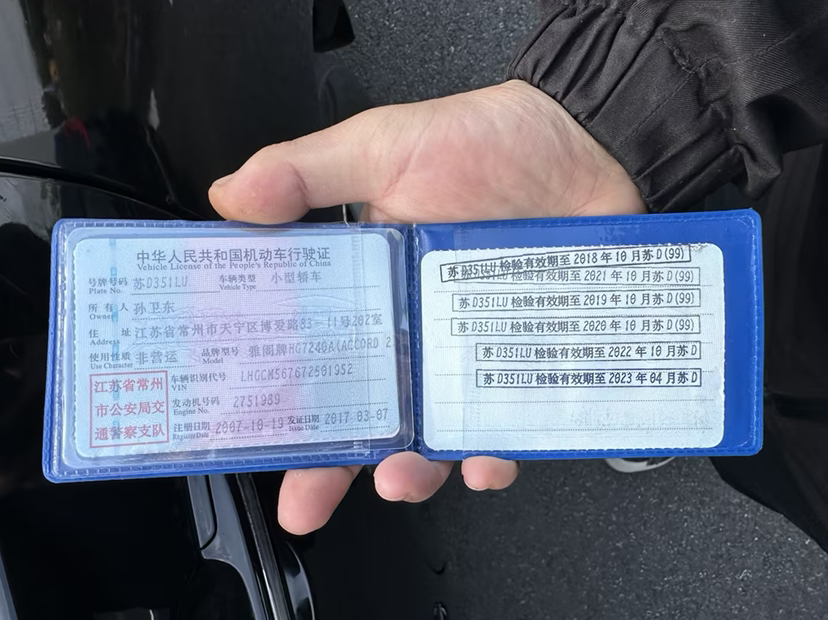 中华人民共和国机动车行驶证
Vehicle License of the People's Republic of China
号牌号码 苏D351LU 车辆类型 小型轿车
Plate No. Vehicle Type
所有人 孙卫东
Owner
住址 江苏省常州市天宁区博爱路83-11号202室
Address
使用性质 非营运 品牌型号 雅阁牌HG7240A(ACCORD 2
Use Character Model
江苏省常州
市公安局交
通警察支队
车辆识别代号 LHGCM567672501952
VIN
发动机号码 2751989
Engine No.
注册日期 2007-10-19 发证日期 2017-03-07
Register Date Issue Date
苏D351LU检验有效期至2018年10月苏D(99)
苏D351LU检验有效期至2021年10月苏D(99)
苏D351LU检验有效期至2019年10月苏D(99)
苏D351LU检验有效期至2020年10月苏D(99)
苏D351LU检验有效期至2022年10月苏D
苏D351LU检验有效期至2023年04月苏D